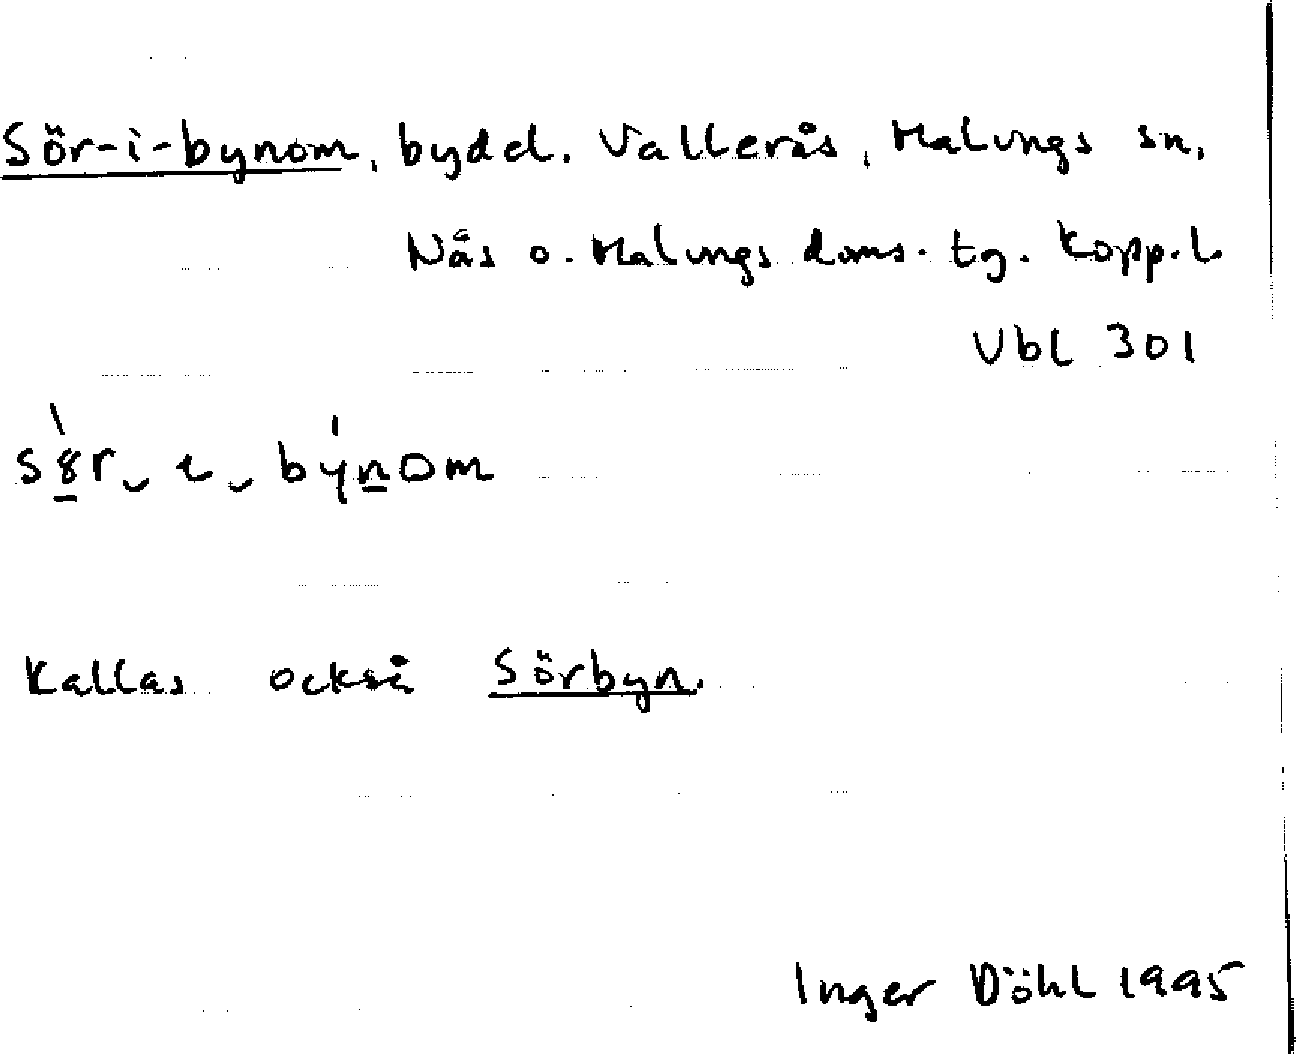 Sör-i-bynom, bydel. Vallerås, Malungs sn,
Nås o. Malungs doms. tg. Kopp. l.
Ubl 301
Kallas också Sörbyn.
Inger Döhl 1995